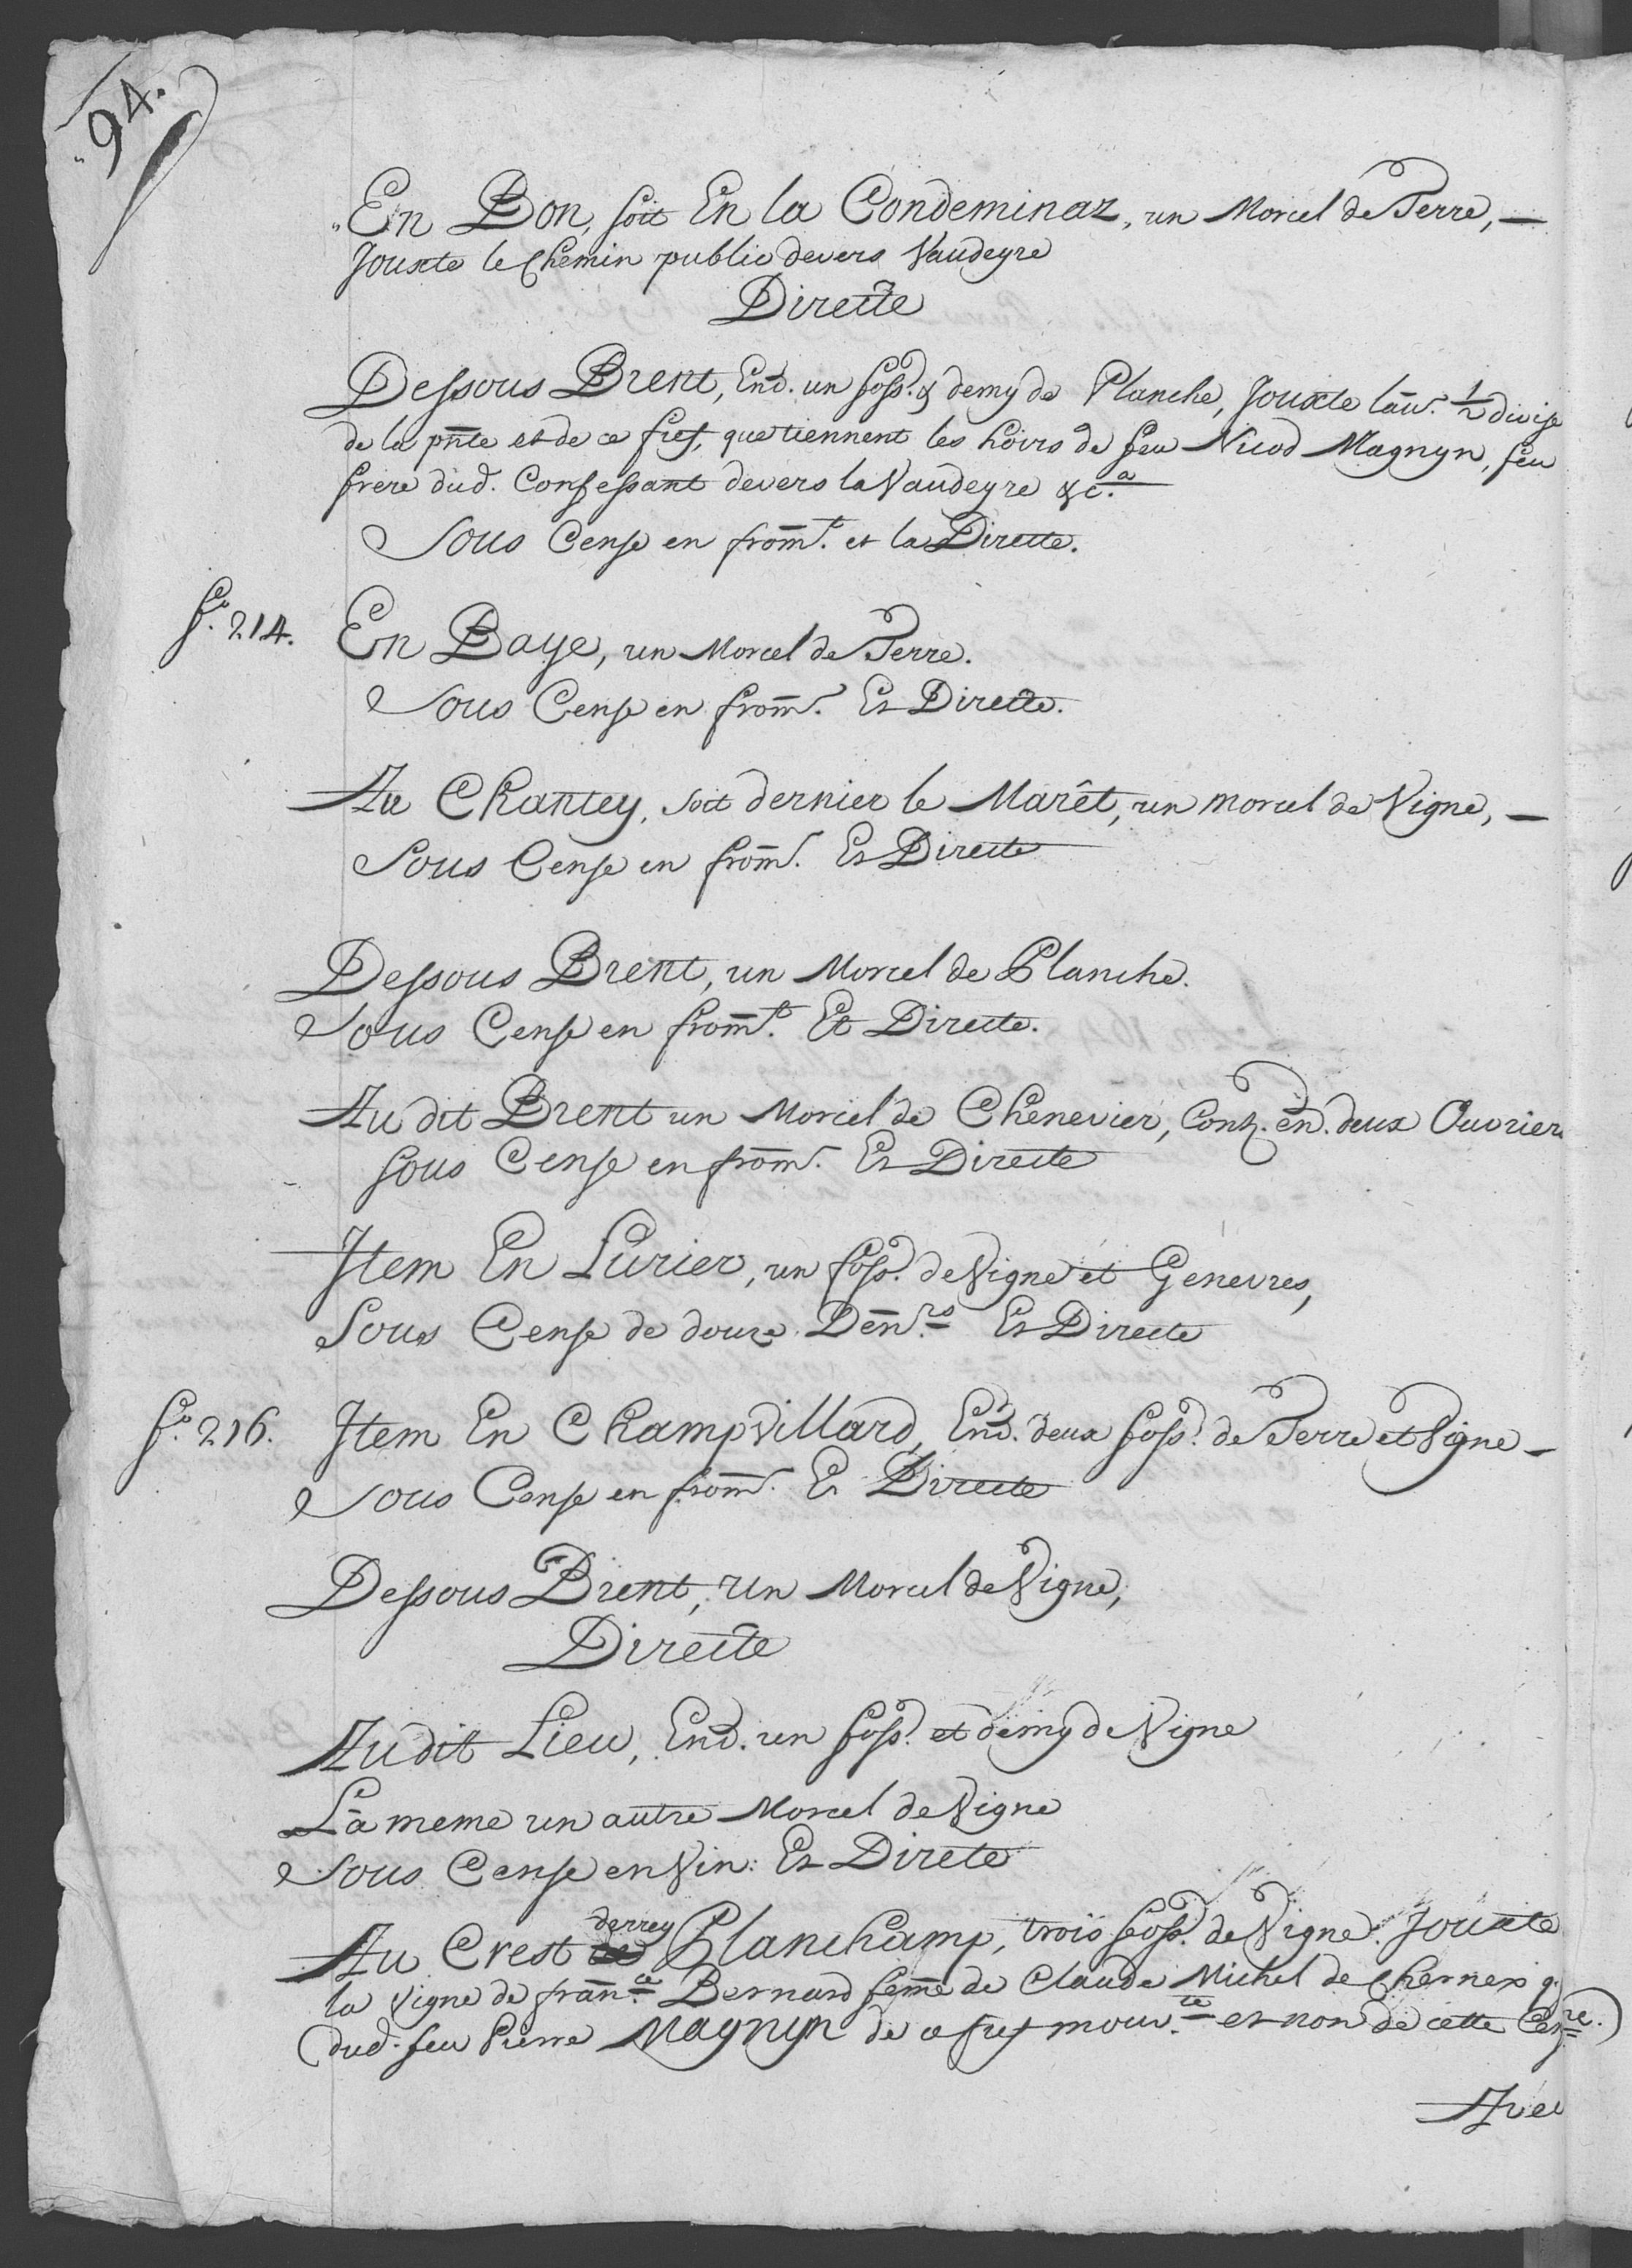 94.
En Bon, soit En la Condeminaz, un Morcel de Terre,
Jouxte le Chemin public devers Vaudeyre
Directe
Dessous Brent, End. un foss. & demy de Planche, Jouxte lau. 1/2 divise
de la pnte et de ce fief, que tiennent les hoirs de feu Nicod Magnyn, feu
frere dud. Confessant devers la Vaudeyre &c.a
Sous Cense en from.t et la Directe.
f.o 214. En Baye, un Morcel de Terre.
Sous Cense en from.t Et Directe.
Au Chantey, soit dernier le Marêt, un morcel de Vigne,
Sous Cense en from.t Et Directe
Dessous Brent, un Morcel de Planche.
Sous Cense en from.t Et Directe.
Au dit Brent un Morcel de Chenevier, Cont. en. deux Ouvrier
sous Cense en from.t Et Directe
Item En Lurier, un foss. de Vigne et Genevres,
Sous Cense de douze Den.rs Et Directe
f.o 216. Item En Champvillard, End. deux foss. de Terre et Vigne
Sous Cense en from.t Et Directe
Dessous Brent, un Morcel de Vigne,
Directe
Au dit Lieu, End. un foss. et demy de Vigne
La meme un autre Morcel de Vigne
Sous Cense en Vin: Et Direte
derrey
Au Crest Planchamp, trois foss. de Vigne. Jouxte
la Vigne de fran.ce Bernard feme de Claude Michel de Chernex q.
(dud. feu Pierre Magnyn de ce fief mouv.te et non de cette Cens.re.)
Avec